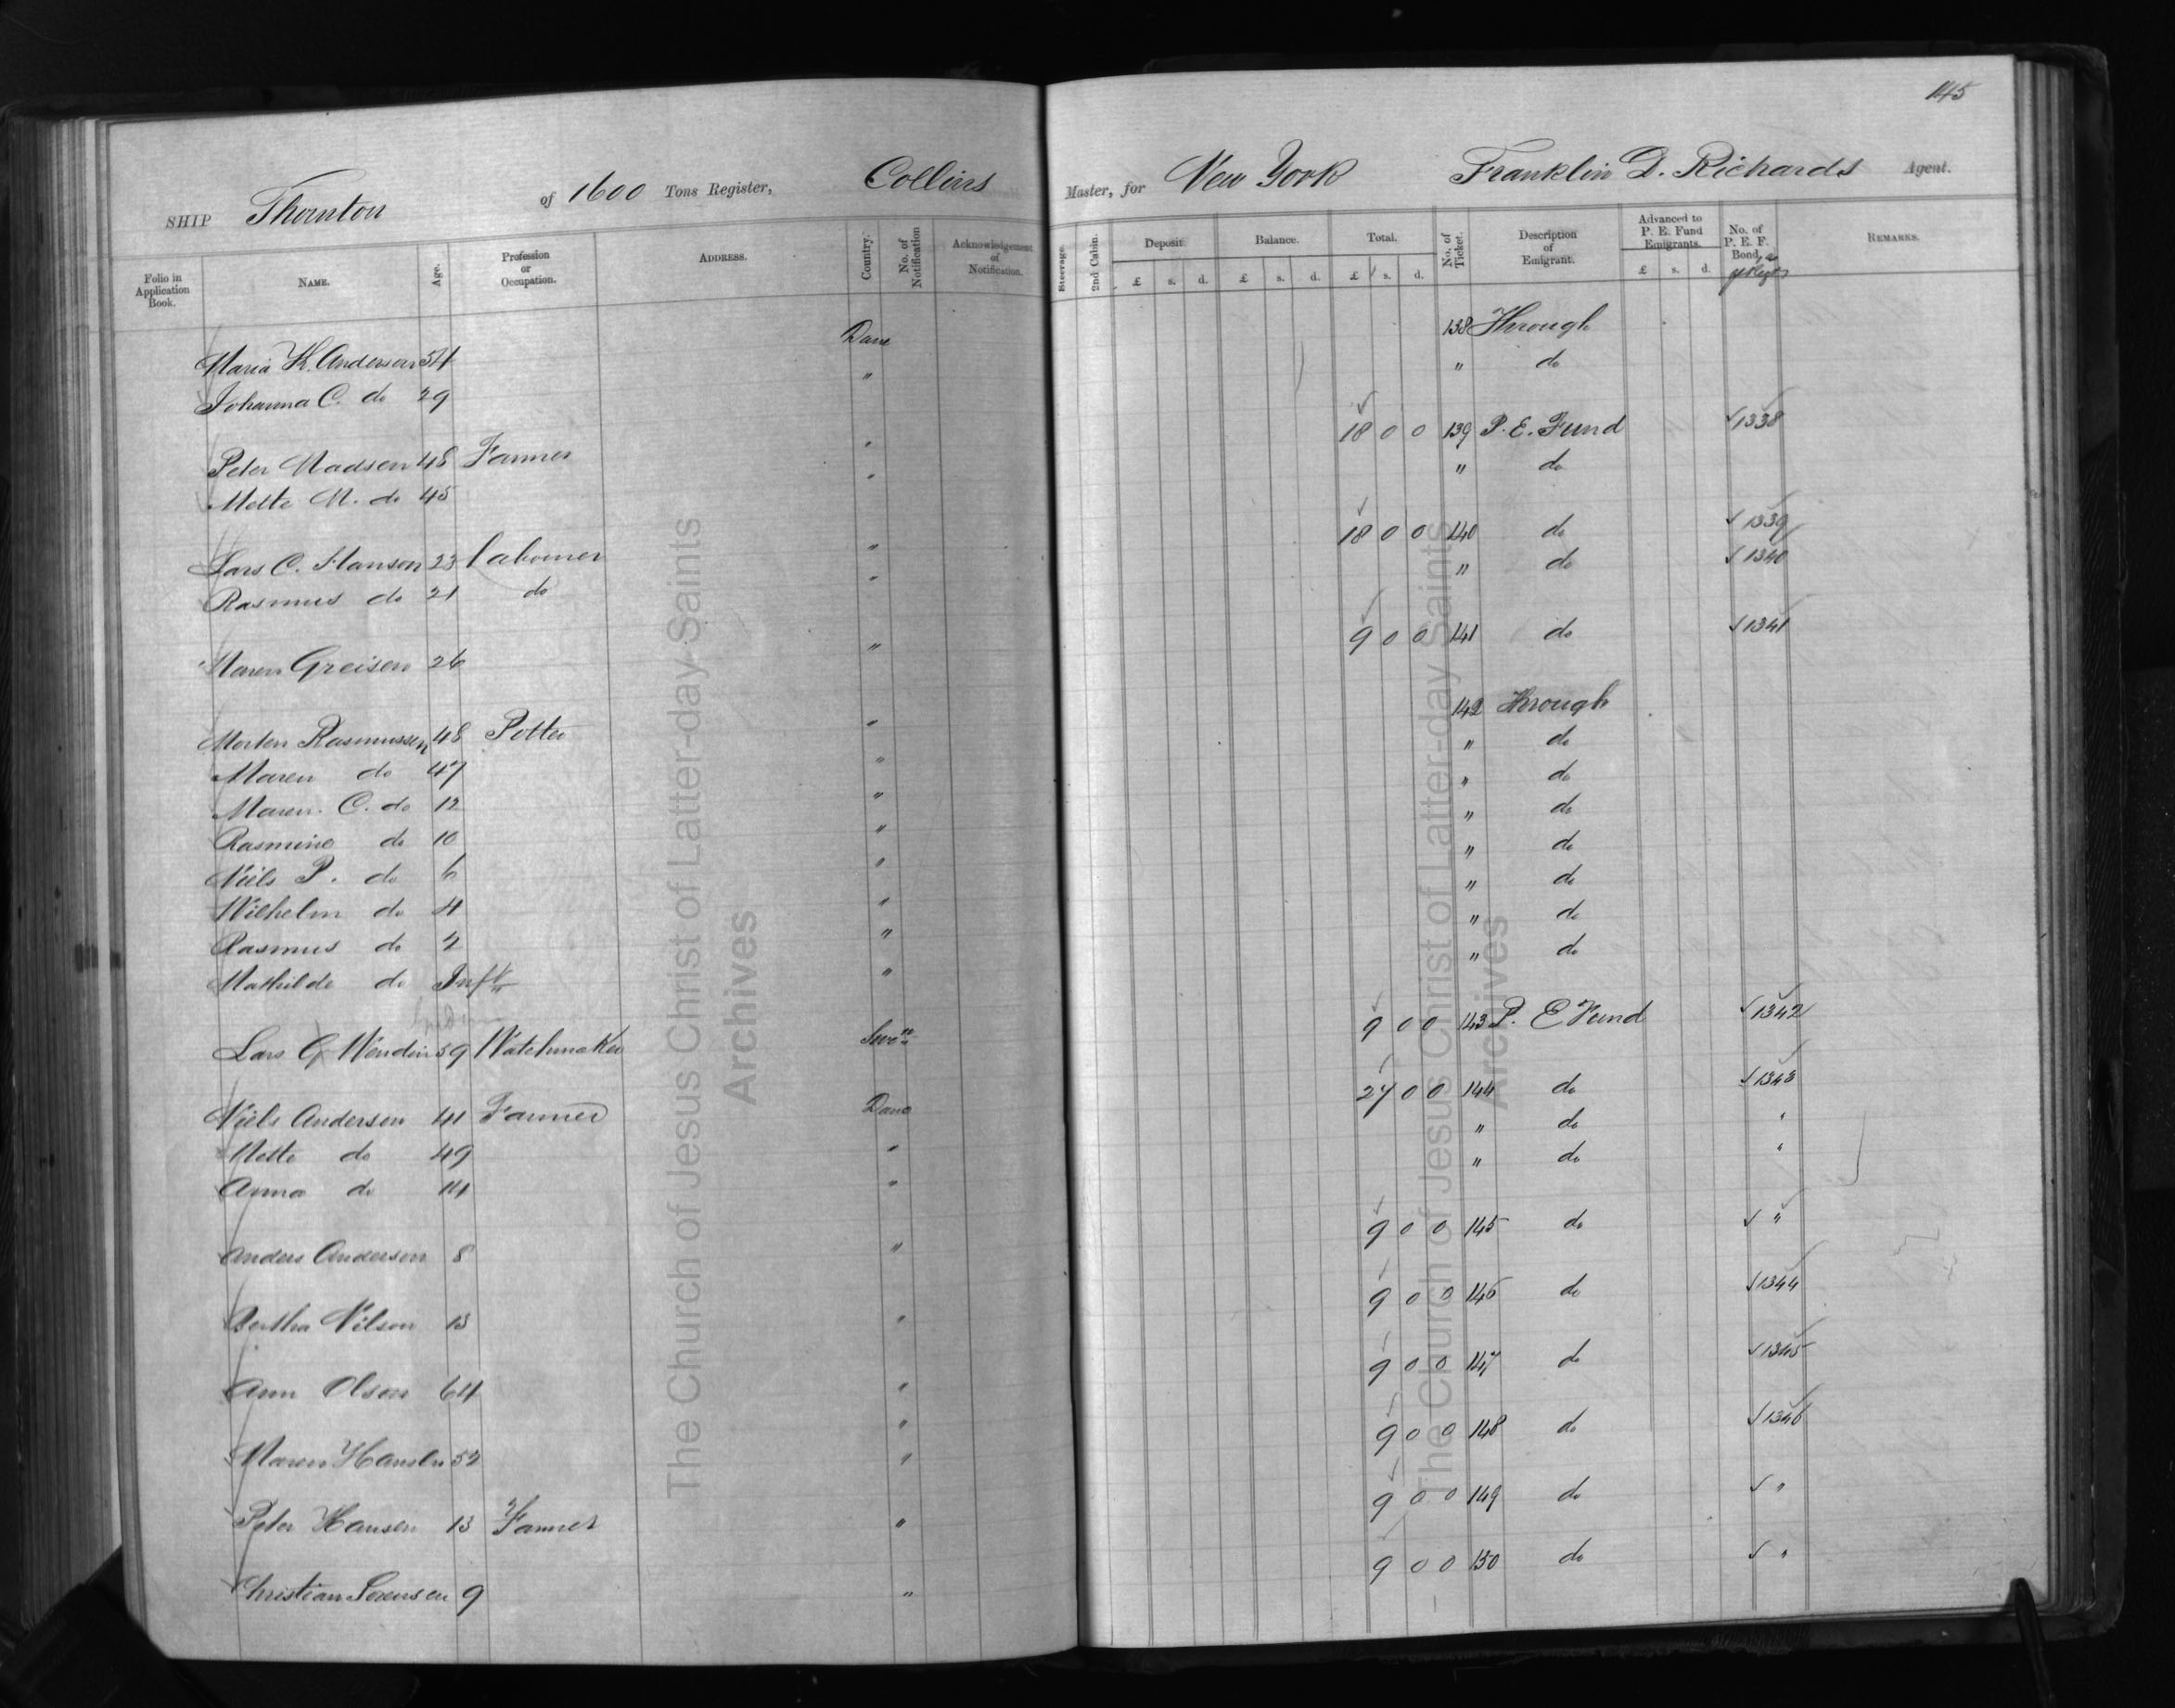 145
SHIP Thornton of 1600 Tons Register, Collins Master, for New York Franklin D. Richards Agent.
Folio in Application Book. NAME. Age. Profession or Occupation. ADDRESS. Country. No. of Notification Acknowledgement of Notification. Steerage. 2nd Cabin. Deposit £ s. d. Balance. £ s. d. Total. £ s. d. No. of Ticket. Description of Emigrant. Advanced to P. E. Fund Emigrants. £ s. d. No. of P. E. F. Bond, REMARKS.
Maria K. Anderson 54 Dane 138 Through
Johanna C. do 29 " " do
Peter Madsen 48 Farmer " 18 0 0 139 P. E. Fund 1338
Mette M. do 45 " " do
Lars C. Hanson 23 Labourer " 18 0 0 140 do 1339
Rasmus do 21 do " " do 1340
Maren Greisen 26 " 9 0 0 141 do 1341
Morten Rasmussen 48 Potter " 142 Through
Maren do 47 " " do
Maren. C. do 12 " " do
Rasmine do 10 " " do
Niels P. do 6 " " do
Wilhelm do 4 " " do
Rasmus do 2 " " do
Mathilde do Inft " " do
Lars G Wendin 59 Watchmaker Swe 9 0 0 143 P. E Fund 1342
Niels Anderson 41 Farmer Dane 27 0 0 144 do 1343
Mette do 49 " " do "
Anna do 14 " " do "
Anders Anderson 8 " 9 0 0 145 do "
Bertha Nilson 13 " 9 0 0 146 do 1344
Ann Olson 64 " 9 0 0 147 do 1345
Maren Hansen 52 " 9 0 0 148 do 1346
Peter Hansen 13 Farmer " 9 0 0 149 do "
Christian Sorensen 9 " 9 0 0 150 do "
The Church of Jesus Christ of Latter-day Saints
Archives
The Church of Jesus Christ of Latter-day Saints
Archives